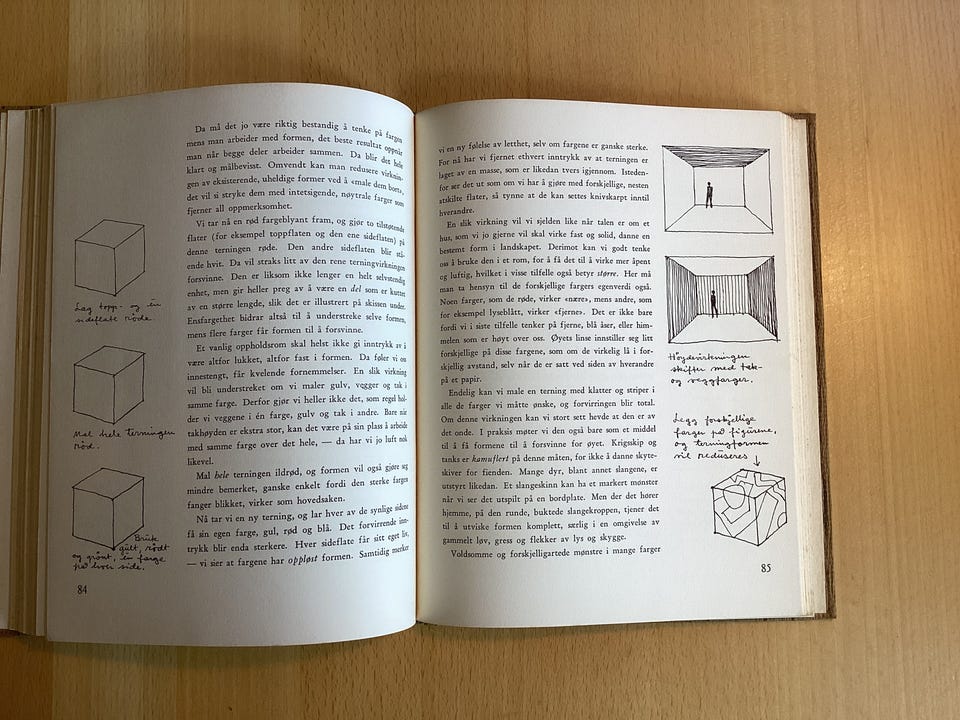 Da må det jo være riktig bestandig å tenke på fargen
mens man arbeider med formen, det beste resultat oppnår
man når begge deler arbeider sammen. Da blir det hele
klart og målbevisst. Omvendt kan man redusere virknin-
gen av eksisterende, uheldige former ved å «male dem bort»,
det vil si stryke dem med intetsigende, nøytrale farger som
fjerner all oppmerksomhet.
Vi tar nå en rød fargeblyant fram, og gjør to tilstøtende
flater (for eksempel toppflaten og den ene sideflaten) på
denne terningen røde. Den andre sideflaten blir stå-
ende hvit. Da vil straks litt av den rene terningvirkningen
forsvinne. Den er liksom ikke lenger en helt selvstendig
enhet, men gir heller preg av å være en del som er kuttet
av en større lengde, slik det er illustrert på skissen under.
Ensfargethet bidrar altså til å understreke selve formen,
mens flere farger får formen til å forsvinne.
Et vanlig oppholdsrom skal helst ikke gi inntrykk av å
være altfor lukket, altfor fast i formen. Da føler vi oss
innestengt, får kvelende fornemmelser. En slik virkning
vil bli understreket om vi maler gulv, vegger og tak i
samme farge. Derfor gjør vi heller ikke det, som regel hol-
der vi veggene i én farge, gulv og tak i andre. Bare når
takhøyden er ekstra stor, kan det være på sin plass å arbeide
med samme farge over det hele, — da har vi jo luft nok
likevel.
Mal hele terningen ildrød, og formen vil også gjøre seg
mindre bemerket, ganske enkelt fordi den sterke fargen
fanger blikket, virker som hovedsaken.
Nå tar vi en ny terning, og lar hver av de synlige sidene
få sin egen farge, gul, rød og blå. Det forvirrende inn-
trykk blir enda sterkere. Hver sideflate får sitt eget liv,
— vi sier at fargene har oppløst formen. Samtidig merker
Lag topp- og én
sideflate røde.
Mal hele terningen
rød.
Bruk
gult, rødt
og grønt, én farge
på hver side.
84
vi en ny følelse av letthet, selv om fargene er ganske sterke.
For nå har vi fjernet ethvert inntrykk av at terningen er
laget av en masse, som er likedan tvers igjennom. Isteden-
for ser det ut som om vi har å gjøre med forskjellige, nesten
atskilte flater, så tynne at de kan settes knivskarpt inntil
hverandre.
En slik virkning vil vi sjelden like når talen er om et
hus, som vi jo gjerne vil skal virke fast og solid, danne en
bestemt form i landskapet. Derimot kan vi godt tenke
oss å bruke den i et rom, for å få det til å virke mer åpent
og luftig, hvilket i visse tilfelle også betyr større. Her må
man ta hensyn til de forskjellige fargers egenverdi også.
Noen farger, som de røde, virker «nære», mens andre, som
for eksempel lyseblått, virker «fjerne». Det er ikke bare
fordi vi i siste tilfelle tenker på fjerne, blå åser, eller him-
melen som er høyt over oss. Øyets linse innstiller seg litt
forskjellig på disse fargene, som om de virkelig lå i for-
skjellig avstand, selv når de er satt ved siden av hverandre
på et papir.
Endelig kan vi male en terning med klatter og striper i
alle de farger vi måtte ønske, og forvirringen blir total.
Om denne virkningen kan vi stort sett hevde at den er av
det onde. I praksis møter vi den også bare som et middel
til å få formene til å forsvinne for øyet. Krigsskip og
tanks er kamuflert på denne måten, for ikke å danne skyte-
skiver for fienden. Mange dyr, blant annet slangene, er
utstyrt likedan. Et slangeskinn kan ha et markert mønster
når vi ser det utspilt på en bordplate. Men der det hører
hjemme, på den runde, buktede slangekroppen, tjener det
til å utviske formen komplett, særlig i en omgivelse av
gammelt løv, gress og flekker av lys og skygge.
Voldsomme og forskjelligartede mønstre i mange farger
Høydevirkningen
skifter med tak-
og veggfarger.
Legg forskjellige
farger på figurene,
og terningformen
vil reduseres
85